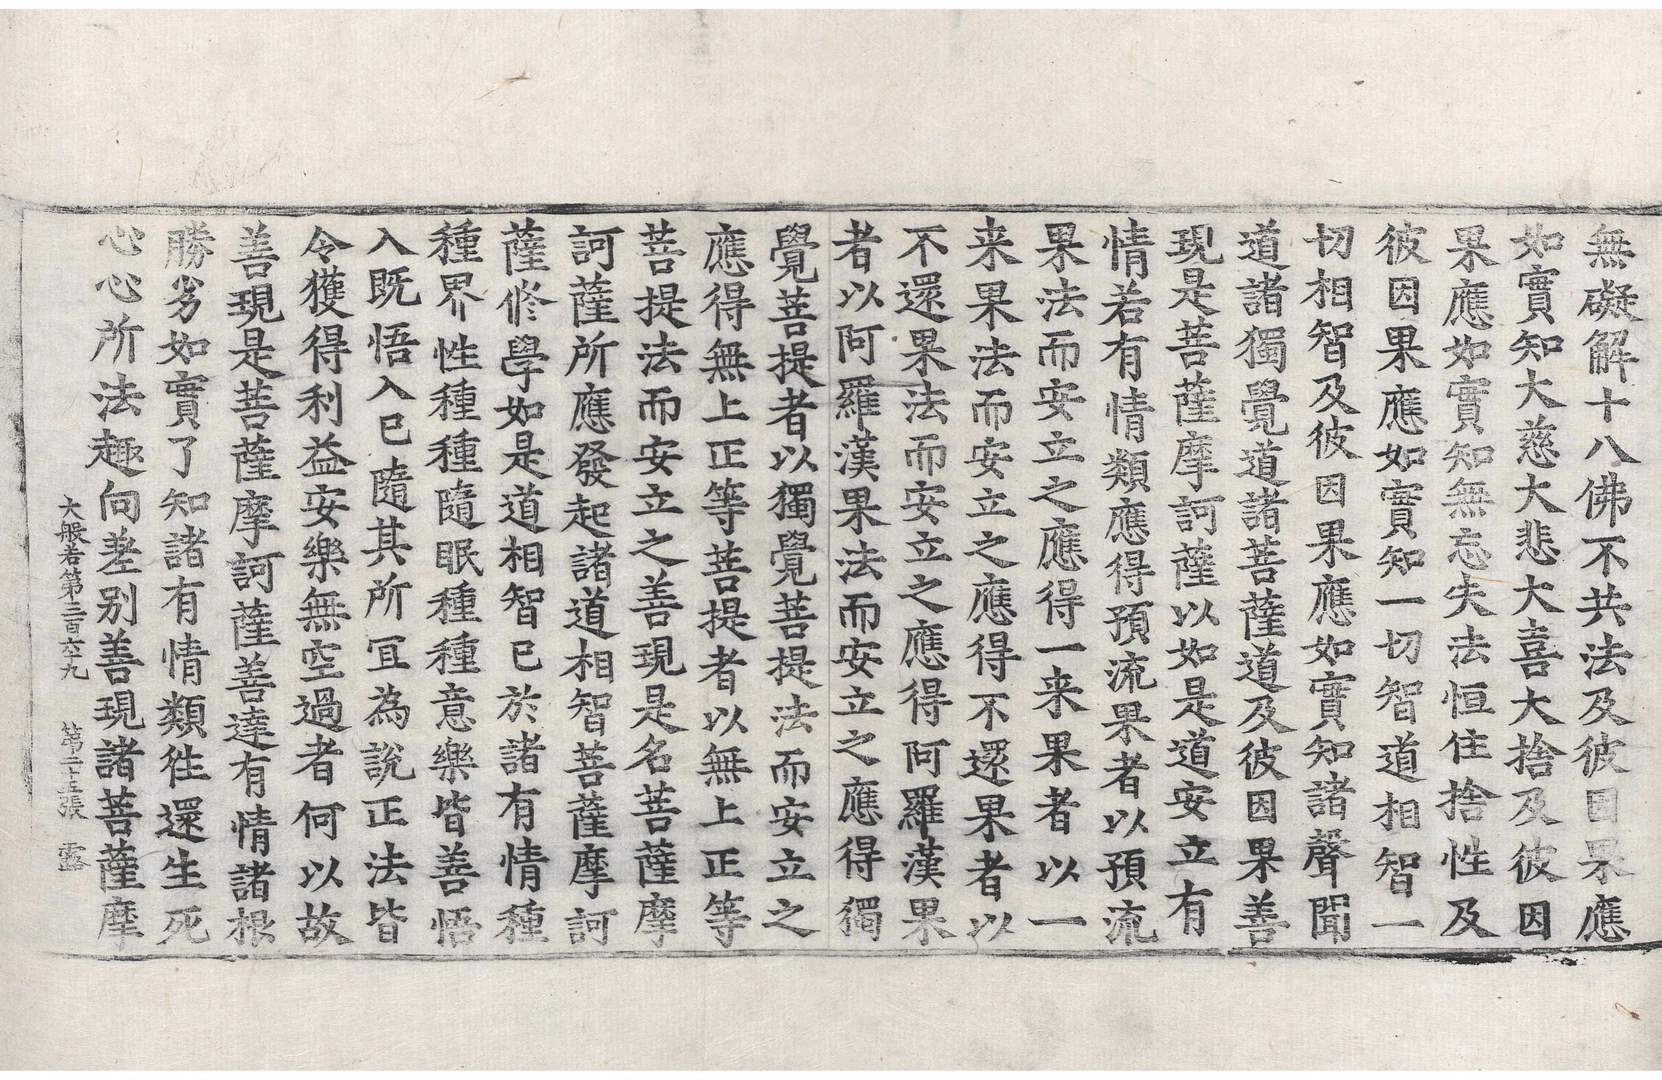 無礙解十八佛不共法及彼因果應
如實知大慈大悲大喜大捨及彼因
果應如實知無忘失法恒住捨性及
彼因果應如實知一切智道相智一
切相智及彼因果應如實知諸聲聞
道諸獨覺道諸菩薩道及彼因果善
現是菩薩摩訶薩以如是道安立有
情若有情類應得預流果者以預流
果法而安立之應得一来果者以一
来果法而安立之應得不還果者以
不還果法而安立之應得阿羅漢果
者以阿羅漢果法而安立之應得獨
覺菩提者以獨覺菩提法而安立之
應得無上正等菩提者以無上正等
菩提法而安立之善現是名菩薩摩
訶薩所應發起諸道相智菩薩摩訶
薩修學如是道相智已於諸有情種
種界性種種隨眠種種意樂皆善悟
入既悟入已隨其所宜為說正法皆
令獲得利益安樂無空過者何以故
善現是菩薩摩訶薩善達有情諸根
勝劣如實了知諸有情類往還生死
心心所法趣向差别善現諸菩薩摩
大般若第三百六九 第二十五張 露